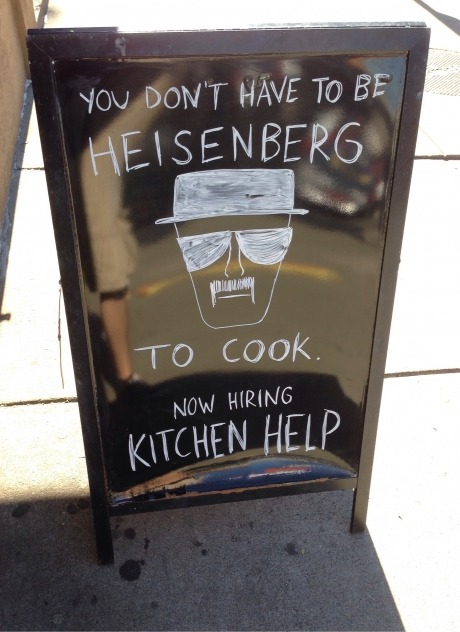 YOU DON'T HAVE TO BE
HEISENBERG
TO COOK.
NOW HIRING
KITCHEN HELP